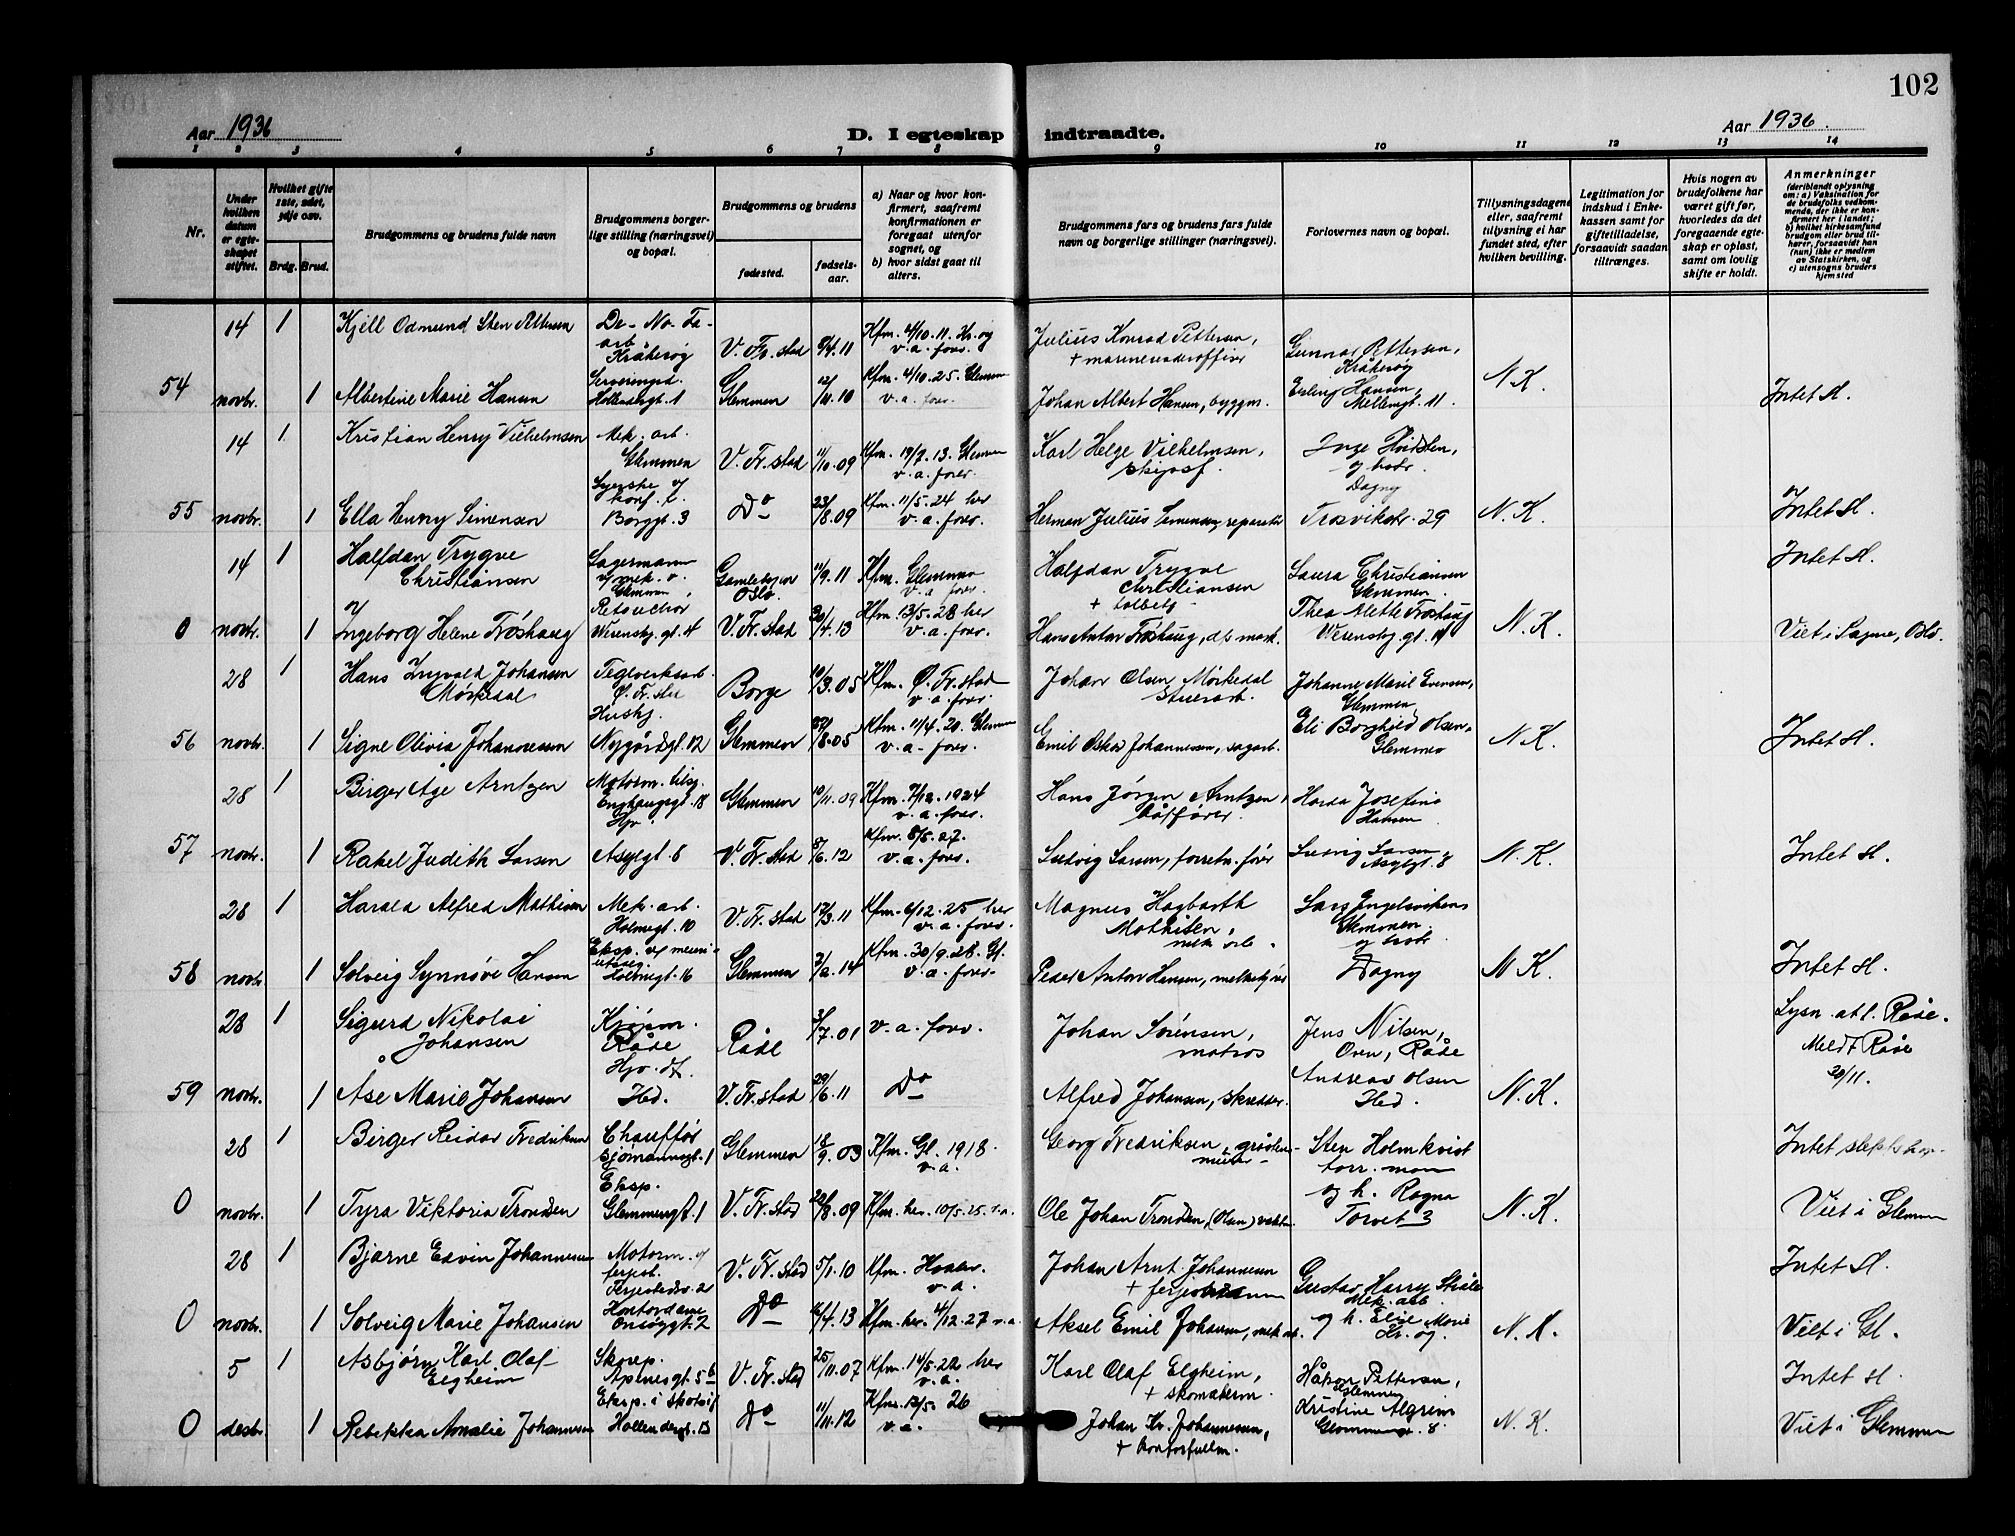 102
Aar 1936
D. I egteskap indtraadte.
Aar 1936.
1 2 3 4 5 6 7 8 9 10 11 12 13 14
Nr.
Under hvilken datum er egteskapet stiftet.
Hvilket gifte 1ste, 2det, 3dje osv.
Brdg. Brud.
Brudgommens og brudens fulde navn
Brudgommens borgerlige stilling (næringsvei) og bopæl.
Brudgommens og brudens
fødested.
fødselsaar.
a) Naar og hvor konfirmert, saafremt konfirmationen er foregaat utenfor sognet, og
b) hvor sidst gaat til alters.
Brudgommens fars og brudens fars fulde navn og borgerlige stillinger (næringsvei).
Forlovernes navn og bopæl.
Tillysningsdagene eller, saafremt tillysning ei har fundet sted, efter hvilken bevilling.
Legitimation for indskud i Enkekassen samt for giftetilladelse, forsaavidt saadan tiltrænges.
Hvis nogen av brudefolkene har været gift før, hvorledes da det foregaaende egteskap er opløst, samt om lovlig skifte er holdt.
Anmerkninger
(deriblandt oplysning om: a) Vaksination for de brudefolks vedkommende, der ikke er konfirmert her i landet; b) hvilket kirkesamfund brudgom eller brud tilhører, forsaavidt han (hun) ikke er medlem av Statskirken, og c) utensogns bruders hjemsted
14 1 Kjell Odmund Sten Pettersen De-No-Fa-arb. Kråkerøy V. Fr. stad 9/4.11 Kfm. 4/10. 11. Kr.øy v. a. forr. Julius Konrad Pettersen, + marineunderofficer Gunnar Pettersen, Kråkerøy
54 novbr. 1 Albertine Marie Hansen Serveringsd. Hollendergt. 1 Glemmen 12/11.10 Kfm. 4/10. 25. Glemmen v. a. forr. Johan Albert Hansen, byggm. Erling Hansen, Mellemgt. 11. N. K. Intet H.
14 1 Kristian Henry Vilhelmsen Mek. arb. Glemmen V. Fr. stad 11/10.09 Kfm. 19/7. 13. Glemmen v. a. forr. Karl Helge Vilhelmsen, skipsf. Inge
55 novbr. 1 Ella Henny Simensen Syerske Borggt. 3 Do 23/8.09 Kfm. 11/5. 24 her v. a. forr. Herman Julius Simensen, reparatør og hustr. Dagny Trosvikstr. 29 N. K. Intet H.
14 1 Halfdan Trygve Christiansen Lagermann v/ mek. v. Glemmen Gamlebyen Oslo 11/9.11 Kfm. Glemmen v. a. forr. Halfdan Trygve Christiansen + tolbetj. Laura Christiansen Glemmen. Intet H.
0 novbr. 1 Ingeborg Helene Trøshaug Retouchør Werenskj. gt. 14 V. Fr. stad 20/4.13 Kfm. 13/5. 28 her v. a. forr. Hans Anton Trøshaug, Thea Mette Trøshaug Werenskj. gt. 14 N. K. Viet i Sagene, Oslo.
28 1 Hans Ingvald Johansen Mørkedal Teglverksarb. Ø. Fr. stad Borge 10/3.05 Kfm. Ø. Fr. stad v. a. forr. Johan Olsen Mørkedal stuerarb. Johanne Marie Evensen, Glemmen
56 novbr. 1 Signe Olivia Johannessen Hushj. Nygårdsgt. 12 Glemmen 27/8.05 Kfm. 11/4. 20. Glemmen v. a. forr. Emil Oskar Johannesen, sagarb. Eli Borghild Olsen, Glemmen N. K. Intet H.
28 1 Birger Åge Arntzen Motorm. Enghaugsgt. 18 Glemmen 10/11.09 Kfm. 7/12. 1924 v. a. forr. Hans Jørgen Arntzen, båtfører. Harda Josefine Hansen
57 novbr. 1 Rakel Judith Larsen Hjv. Asylgt. 8 V. Fr. stad 8/6.12 Kfm. 8/5. 27. v. a. forr. Ludvig Larsen, forretn. fører Ludvig Larsen Asylgt. 8 N. K. Intet H.
28 1 Harald Alfred Mathisen Mek. arb. Holmegt. 10 V. Fr. stad 12/3.11 Kfm. 6/12. 25 her v. a. forr. Magnus Hagbarth Mathisen, mek arb. Lars Engelsvikens Glemmen. og hustr.
58 novbr. 1 Solveig Synnøve Hansen Eksp. v/ meieriutsalg Holmegt. 16 Glemmen 3/2.14 Kfm. 30/9. 28. Gl. v. a. forr. Peder Anton Hansen, melkekjører Dagny N. K. Intet H.
28 1 Sigurd Nikolai Johansen Kjøpm. Råde Råde 3/7.01 v. a. forr. Johan Sørensen, matros Jens Nilsen, Oven, Råde Lysn. att. Råde. Meldt Råde 30/11.
59 novbr. 1 Åse Marie Johansen Hjv. dt. Ibd. V. Fr. stad 29/6.11 Do Alfred Johansen, skredder. Andreas Olsen Ibd. N. K.
28 1 Birger Reidar Fredriksen Chauffør Sjømannsgt. 1 Glemmen 18/9.03 Kfm. Gl. 1918. v. a. Georg Fredriksen, gråstensmurer Sten Holmkvist forr. man Intet slektskap.
0 novbr. 1 Tyra Viktoria Tronden Eksp. Glemmengt. 1 V. Fr. stad 20/8.09 Kfm. her. 10/5. 25. v. a. Ole Johan Tronden, (Olsen) og h. Ragna Torvet 3 N. K. Viet i Glemmen
28 1 Bjarne Edvin Johannessen Motorm. v/ ferjest. Ferjestedsv. 2 V. Fr. stad 5/1.10 Kfm. Hvaler. v. a. Johan Arnt Johannesen + ferjemann Gustav Harry Mek. arb. Intet H.
0 novbr. 1 Solveig Marie Johansen Kontordame Onsøygt. 2 Do 16/4.13 Kfm. her. 4/12. 27 v. a. Aksel Emil Johansen, mek arb. og h. Elise Marie Kr. øy. N. K. Viet i Gl.
5 1 Asbjørn Karl Olaf Elgheim Skorep. Apenesgt. 5 b V. Fr. stad 25/11.07 Kfm. 14/5. 22 her v. a. Karl Olaf Elgheim, + skomakerm. Håkon Pettersen, Glemmen Intet H.
0 desbr. 1 Rebekka Amalie Johannesen Eksp. i skotøi Hollendergt. 13 Do 11/11.12 Kfm. 12/5. 26 v. a. Johan Kr. Johannesen, + kontorfullm. Kristine Algrim Glommensgt. 8. N. K. Viet i Glemmen